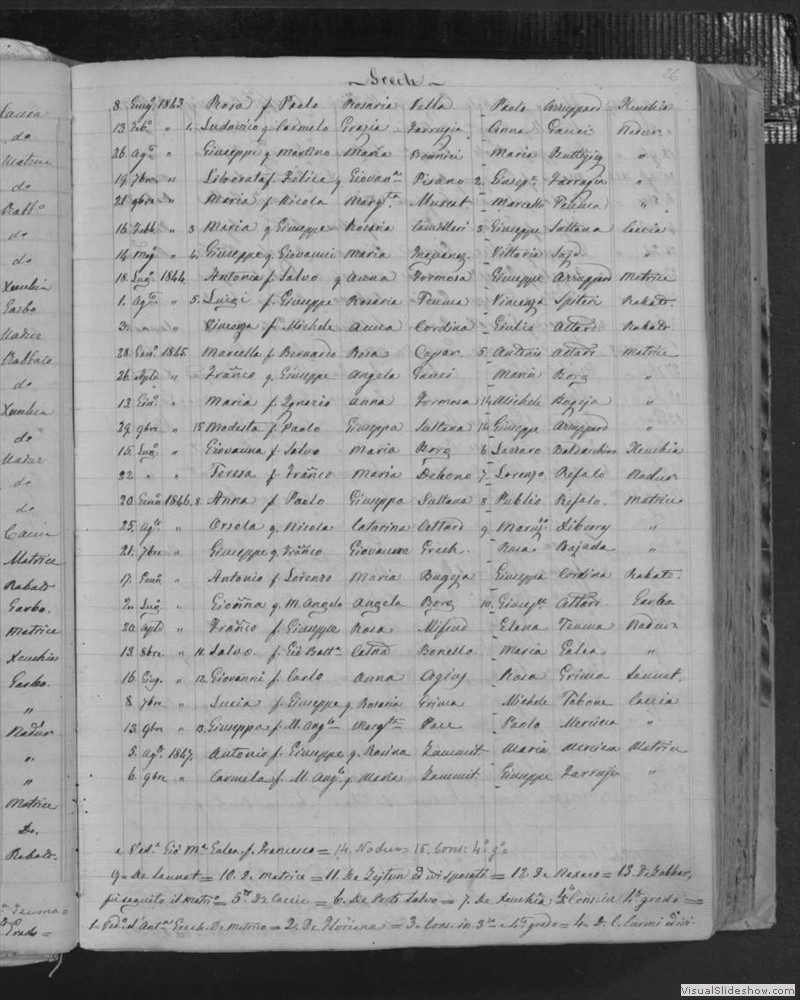 Grech 26
8. Giug.º 1843 Rosa f. Paolo Rosaria Vella Paolo Xeuchia
13. Feb.º " 1. Ludovico q. Carmelo Grazia Farrugia Anna Gauci Nadur
26. Ag.to " Giuseppe q. Martino Maria Bonnici Maria Buttigieg "
19. 7bre " Liberata f. Felice q. Giovan.na Pisano 2. Gusep.e Farrugia "
21. 9bre " Maria f. Nicola Marg.ta Muscat Marcello Teuma "
16. Febb.º " 3 Maria q. Giuseppe Rosaria Camilleri 3. Giuseppe Sultana Caccia
14. Mag.º " 4. Giuseppe q. Giovanni Maria Inguanez Vittoria "
18. Lug.º 1844 Antonia f. Salvo q. Anna Formosa Giuseppe Matrice
1. Ag.to " 5. Luigi f. Giuseppe Rosaria Teuma Vincenza Spiteri Rabato
3. " " Vincenza f. Michele Anna Cordina Giulio Attard Rabato.
28. Gen.º 1845. Marcella f. Bernardo Rosa 5. Antonio Attard Matrice
26. Aple " Franco q. Giuseppe Angela Gauci Maria Borg "
13. " Maria f. Ignazio Anna Formosa 14. Michele Bugeja "
29. 9bre " 15 Modesta f. Paolo Giuseppa Sultana 14. Giuseppe "
15. Lug.º " Giovanna f. Salvo Maria Borg 6. Lazzaro Baldacchino Xeuchia
22. " " Teresa f. Franco Maria Debono 7. Lorenzo Refalo Nadur
20. Genn. 1846. 8. Anna f. Paolo Giuseppa Sultana 8. Publio Refalo. Matrice
25. Ag.to " Orsola q. Nicola Catarina Attard 9. "
21. 7bre " Giuseppe q. Franco Giovanna Grech. Rosa Bajada "
17. Genn. " Antonio f. Lorenzo Maria Bugeja Giuseppa Cordina Rabato.
Lug. " q. M. Angelo Angela Borg 10. Giusep.e Attard Garbo
20. Aple " Franco f. Giuseppe Rosa Mifsud Elena Teuma Nadur
13. 8bre " 11. Salvo. f. Gio Batt.a Catna Bonello. Maria Galea "
16. Giug. " 12. Giovanni f. Carlo Anna Agius Rosa Grima Sannat.
8. 7bre " Lucia f. Giuseppe q. Rosaria Grima Michele Tabone Caccia
13. 9bre " 13. Giuseppa f. M. Ang.lo Marg.ta Pace Paolo Mercieca "
5. Ag.to 1847. Antonio f. Giuseppe q. Rosina Zammit Maria Mercieca Matrice
6. 9bre " Carmela f. M. Ang.lo q. Maria Zammit. Giuseppe Farrugia "
e Ved.a Gio M.a Galea f. Francesco = 14. Nadur = 15. Cons: 4º gº =
9 = De Sannat = 10. D. Matrice = 11. De Zejtun = 12. De Naxaro = 13. D. Zabbar,
= 5. De Caccia = 6. De Porto Salvo = 7. De Xeuchia Cons. in 4to grado =
1. Ved.º d'Ant.a Grech. De Matrice = 2. De Floriana = 3. Cons. in 3zo e 4to grado = 4.
Causa
do
Matrice
do
Rabto
do
do
Xeuchia
Garbo
Nadur
Rabbato
do
Xeuchia
do
Nadur
do
do
Caccia
Matrice
Rabato
Garbo.
Matrice
Xeuchia
Garbo.
"
Nadur
"
"
Matrice
Do.
Rabato.
Teuma =
Grado =
VisualSlideshow.com